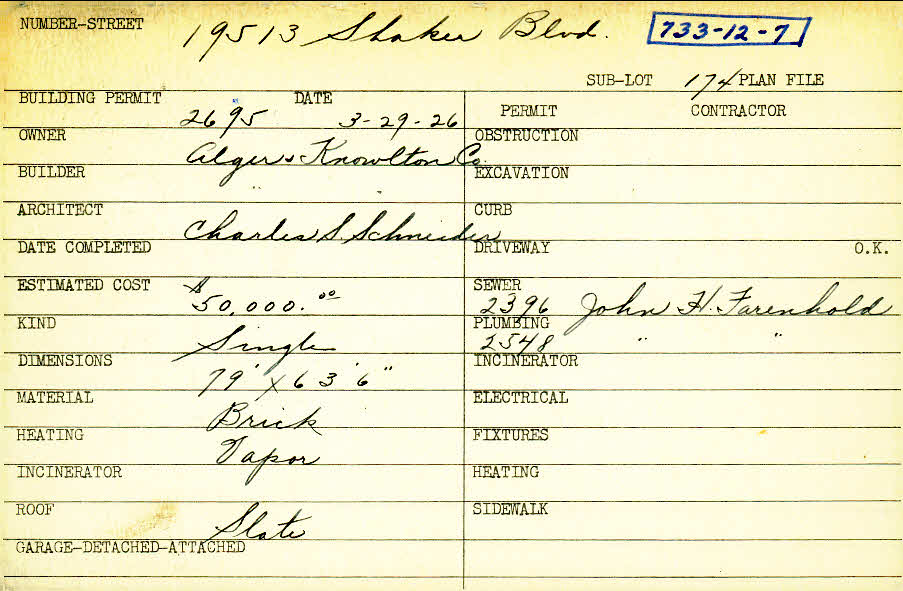 NUMBER-STREET 19513 Shaker Blvd. 733-12-7
SUB-LOT 174 PLAN FILE
BUILDING PERMIT 2695 DATE 3-29-26
PERMIT CONTRACTOR
OWNER Alger & Knowlton Co.
OBSTRUCTION
BUILDER " "
EXCAVATION
ARCHITECT Charles S. Schneider
CURB
DATE COMPLETED
DRIVEWAY O.K.
ESTIMATED COST $50,000.00
SEWER 2396 John H. Farenhold
KIND Single
PLUMBING 2548 " "
DIMENSIONS 79' x 63' 6"
INCINERATOR
MATERIAL Brick
ELECTRICAL
HEATING Vapor
FIXTURES
INCINERATOR
HEATING
ROOF Slate
SIDEWALK
GARAGE-DETACHED-ATTACHED